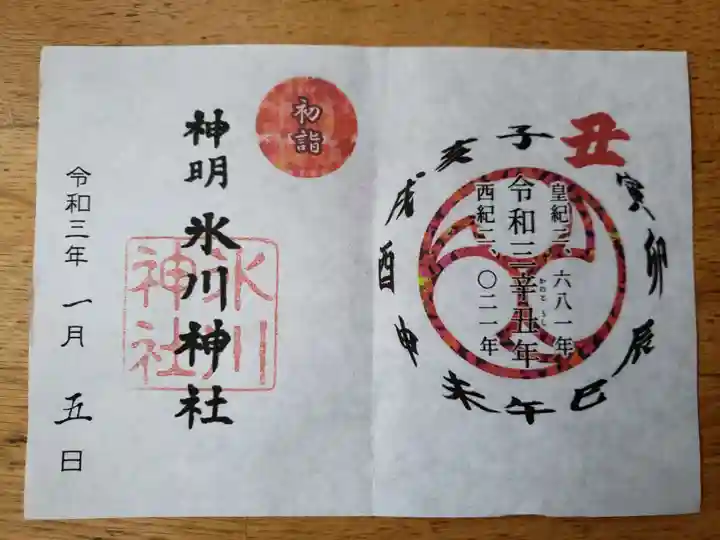 丑
子
亥
戌
酉
申
未
午
巳
辰
卯
寅
皇紀二、六八一年
令和三辛丑年
かのとうし
西紀二、〇二一年
初詣
神明氷川神社
氷川
神社
令和三年一月五日